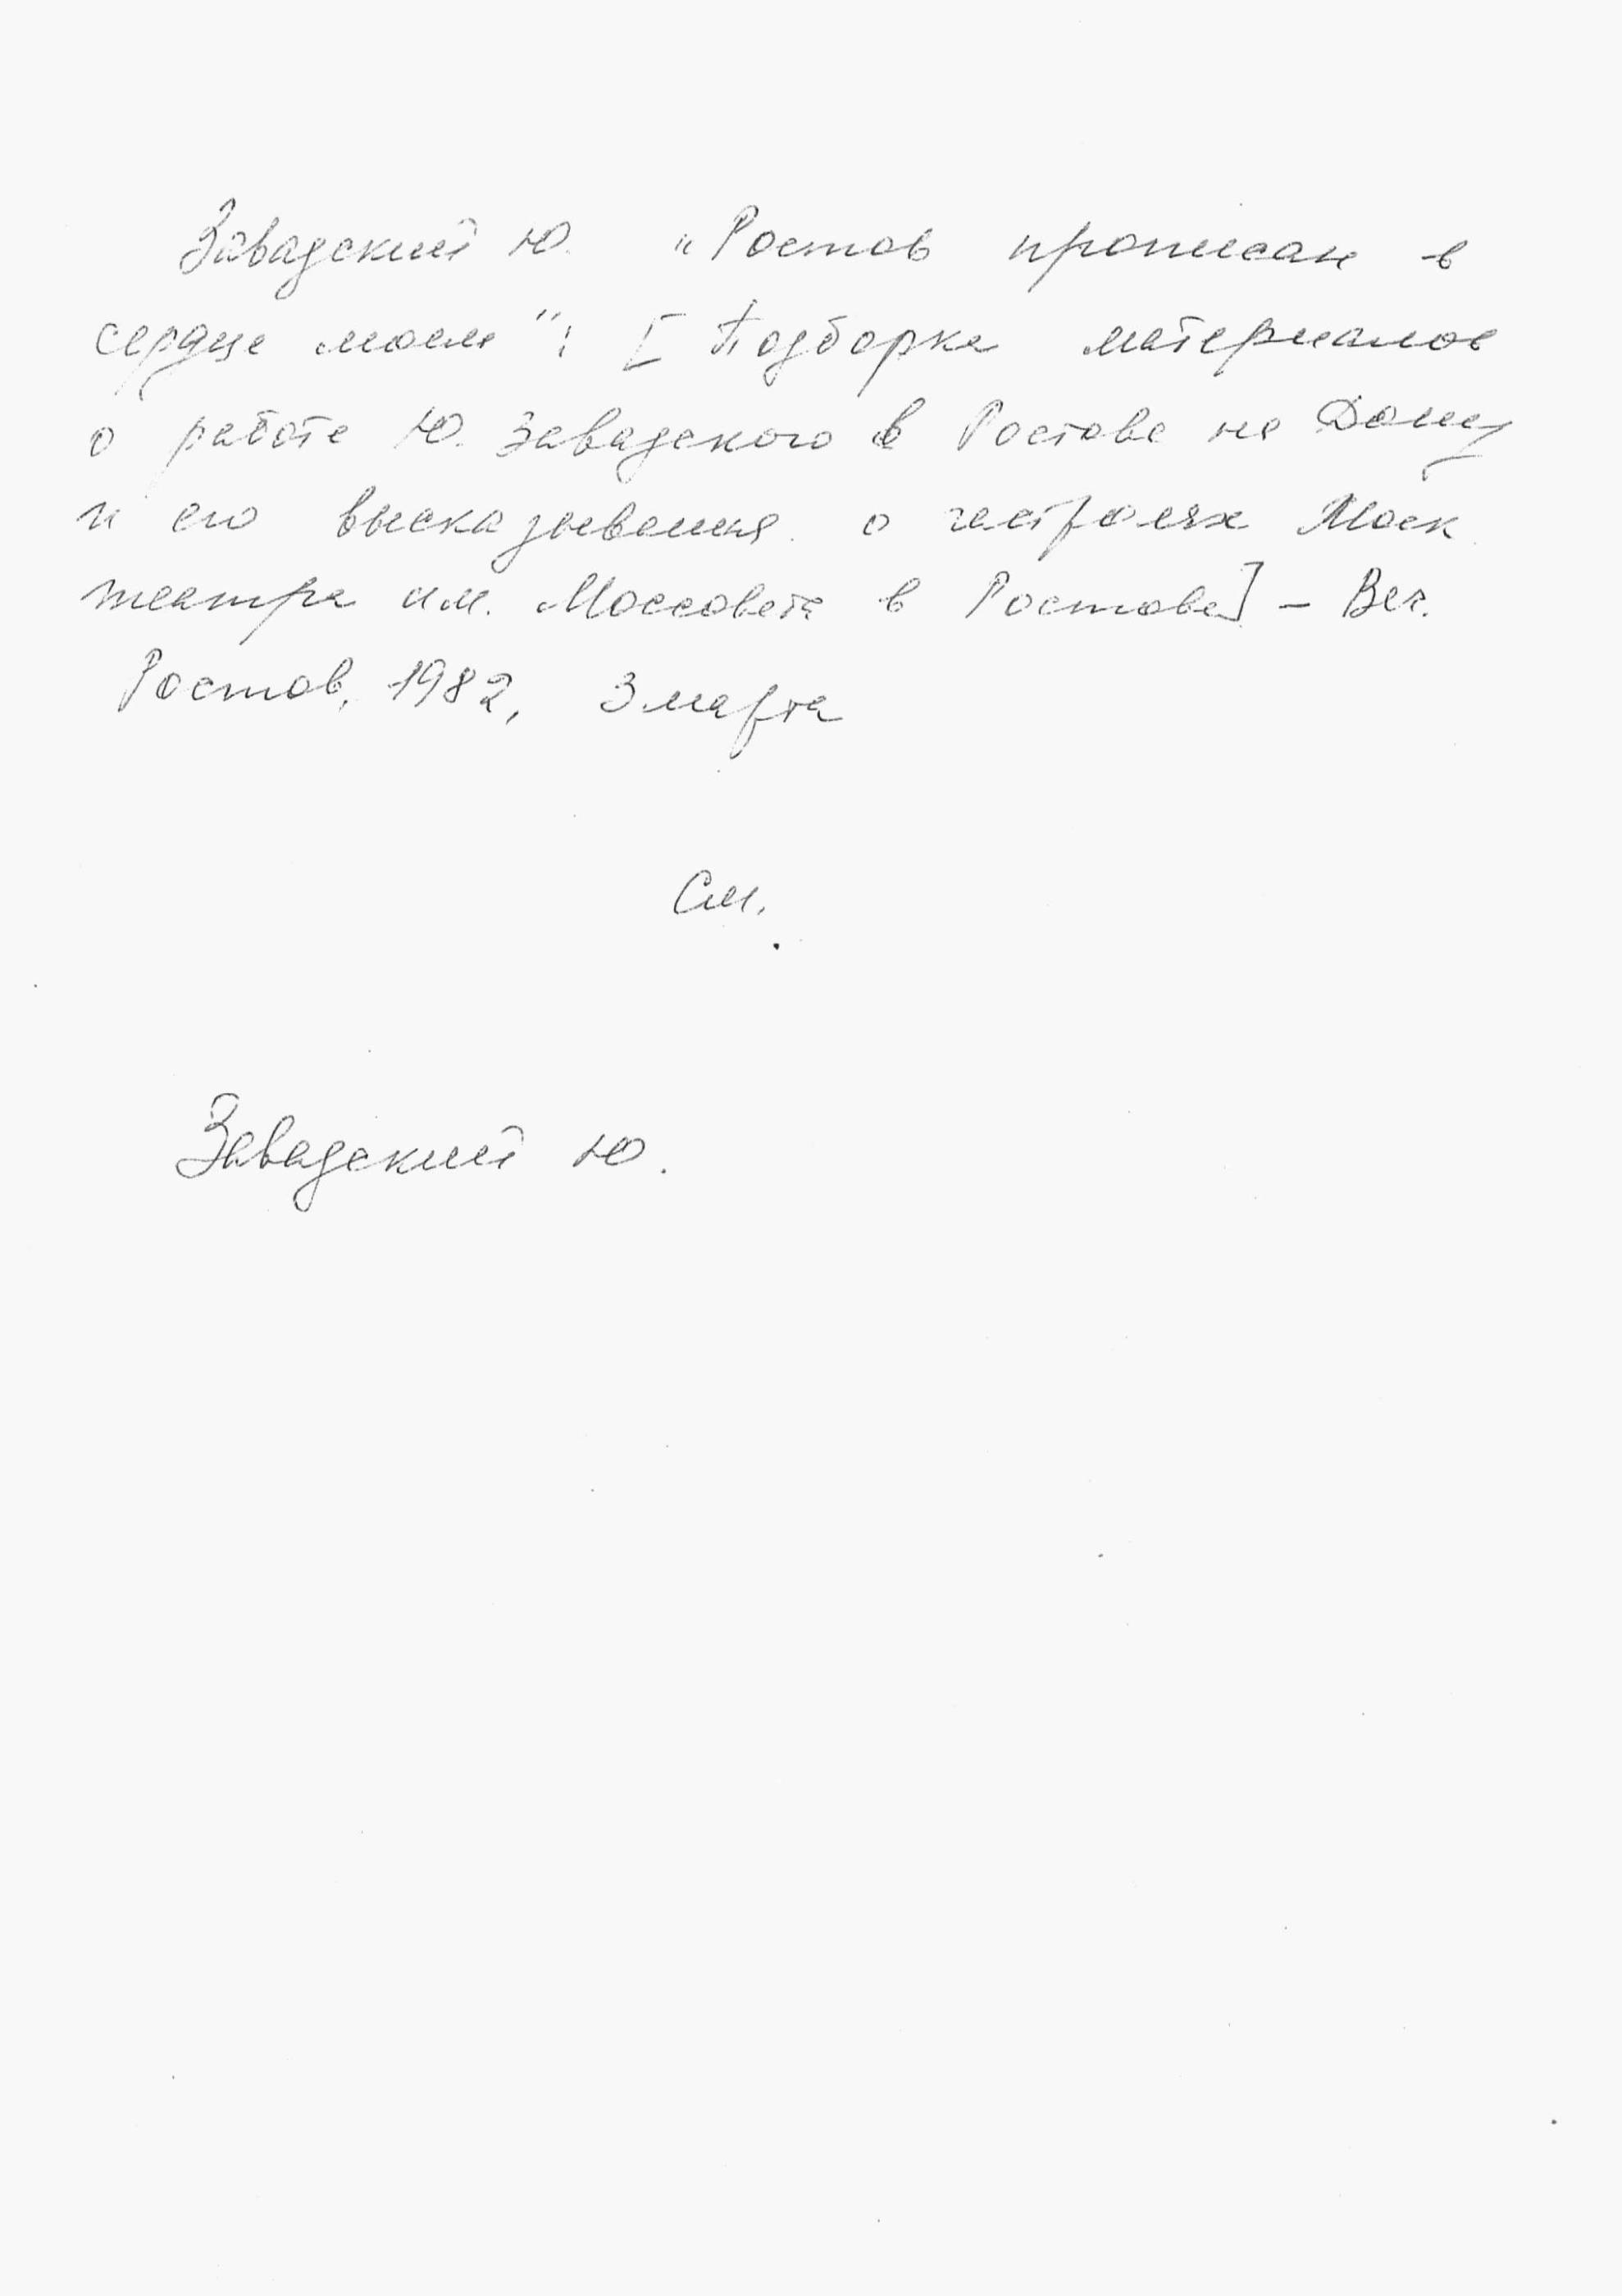 Завадский Ю. "Ростов прописан в
сердце моем": [Подборка материалов
о работе Ю. Завадского в Ростове на Дону
и его высказывания о гастролях Моск.
театра им. Моссовета в Ростове] - Веч.
Ростов, 1982, 3 марта
См.
Завадский Ю.